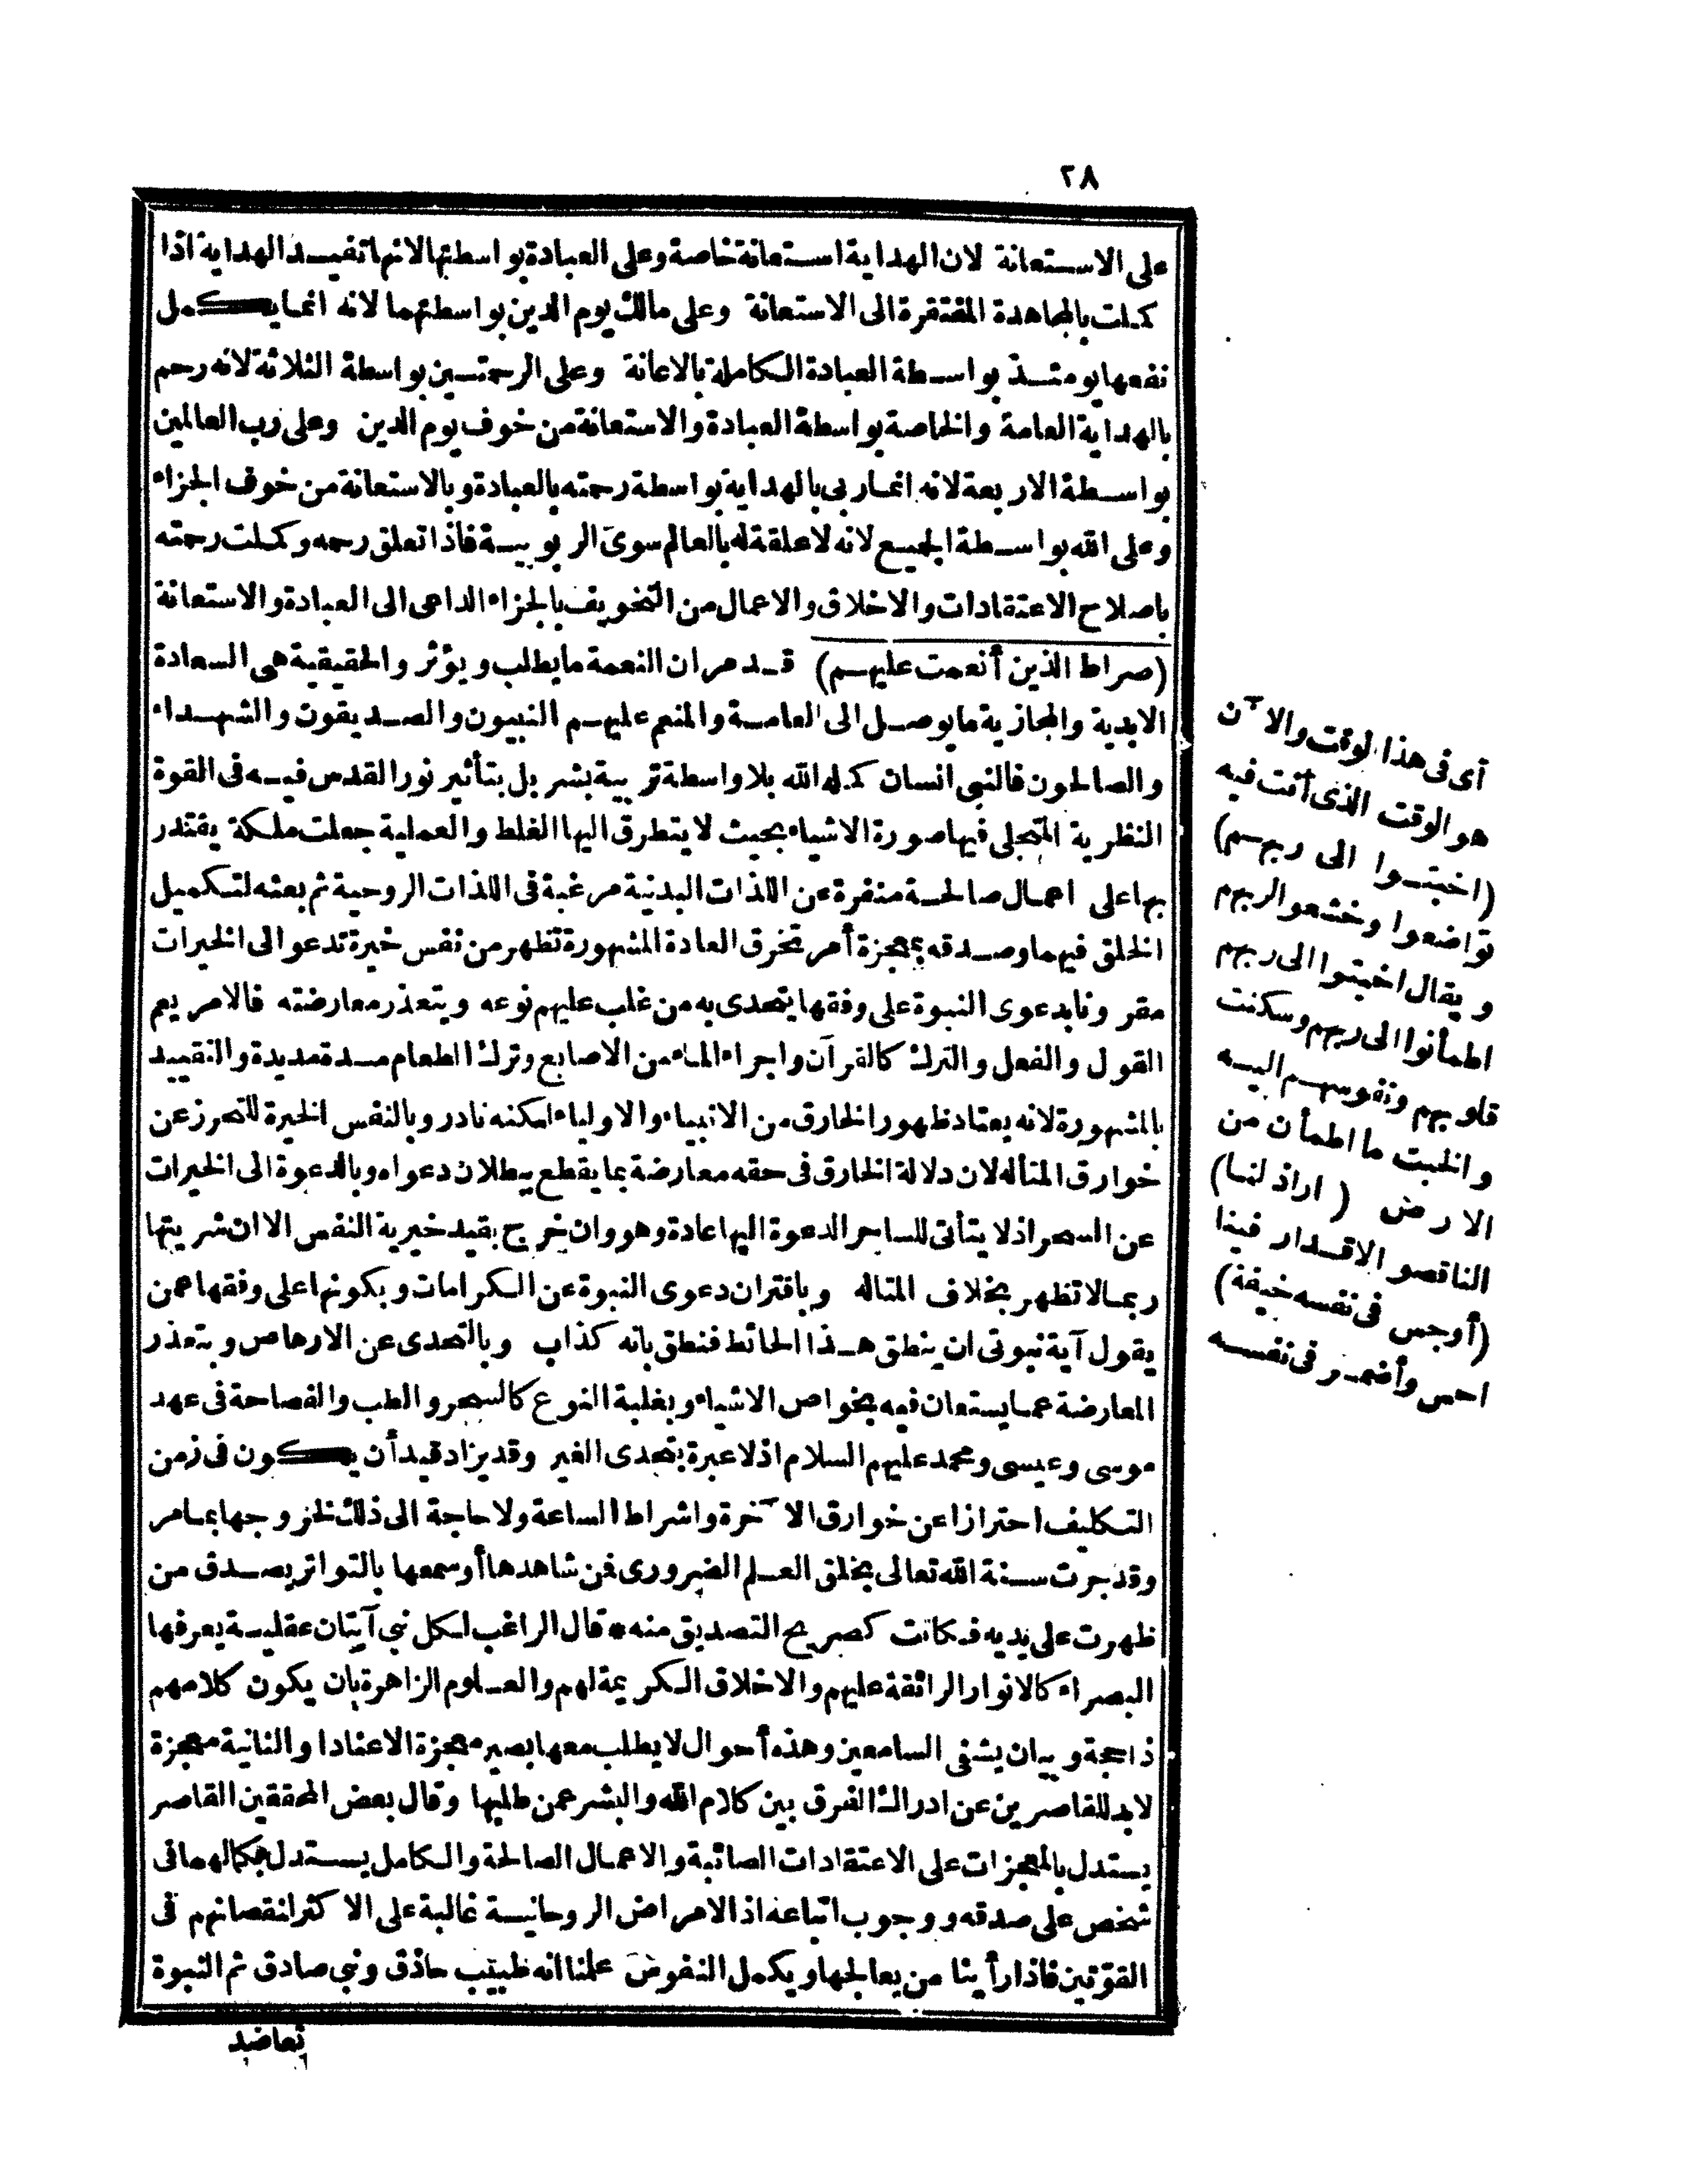 ٢٨
على الاستعانة لان الهداية استعانة خاصة وعلى العبادة بواسطتها لانها تفيد الهداية اذا
كملت بالمجاهدة المفتقرة الى الاستعانة وعلى مالك يوم الدين بواسطتهما لانه انما يكمل
نفعها يومئذ بواسطة العبادة الكاملة بالاعانة وعلى الرحمتين بواسطة الثلاثة لانه رحم
بالهداية العامة والخاصة بواسطة العبادة والاستعانة من خوف يوم الدين وعلى رب العالمين
بواسطة الاربعة لانه انما ربى بالهداية بواسطة رحمته بالعبادة وبالاستعانة من خوف الجزاء
وعلى الله بواسطة الجميع لانه لا علقة له بالعالم سوى الربوبية فاذا تعلق رحمه وكملت رحمته
باصلاح الاعتقادات والاخلاق والاعمال من التخويف بالجزاء الداعى الى العبادة والاستعانة
(صراط الذين أنعمت عليهم) قد مر ان النعمة ما يطلب ويؤثر والحقيقية هى السعادة
الابدية والمجازية ما يوصل الى العامة والمنعم عليهم النبيون والصديقون والشهداء
والصالحون فالنبى انسان كمله الله بلا واسطة تربية بشر بل بتأثير نور القدس فيه فى القوة
النظرية المتجلى فيها صورة الاشياء بحيث لا يتطرق اليها الغلط والعملية جعلت ملكة يقتدر
بها على اعمال صالحة منفرة عن اللذات البدنية مرغبة فى اللذات الروحية ثم بعثه لتكميل
الخلق فيهما وصدقه بمعجزة أمر تخرق العادة المشهورة تظهر من نفس خيرة تدعو الى الخيرات
مقرونا بدعوى النبوة على وفقها يتحدى به من غلب عليهم نوعه ويتعذر معارضته فالامر يعم
القول والفعل والترك كالقرآن واجراء الماء من الاصابع وترك الطعام مدة مديدة والتقييد
بالمشهورة لانه يعتاد ظهور الخارق من الانبياء والاولياء لكنه نادر وبالنفس الخيرة للتحرز عن
خوارق المتأله لان دلالة الخارق فى حقه معارضة بما يقطع ببطلان دعواه وبالدعوة الى الخيرات
عن السحر اذ لا يتأتى للساحر الدعوة اليها عادة وهو وان خرج بقيد خيرية النفس الا ان شريتها
ربما لا تظهر بخلاف المتاله وباقتران دعوى النبوة عن الكرامات وبكونها على وفقها عمن
يقول آية نبوتى ان ينطق هذا الحائط فنطق بانه كذاب وبالتحدى عن الارهاص وبتعذر
المعارضة عما يستعان فيه بخواص الاشياء وبغلبة النوع كالسحر والطب والفصاحة فى عهد
موسى وعيسى ومحمد عليهم السلام اذ لا عبرة بتحدى الغير وقد يزاد قيد أن يكون فى زمن
التكليف احترازا عن خوارق الآخرة واشراط الساعة ولا حاجة الى ذلك لخروجها بما مر
وقد جرت سنة الله تعالى بخلق العلم الضرورى لمن شاهدها أو سمعها بالتواتر بصدق من
ظهرت على يديه فكانت كصريح التصديق منه * قال الراغب لكل نبى آيتان عقلية يعرفها
البصراء كالانوار الرائقة عليهم والاخلاق الكريمة لهم والعلوم الزاهرة بان يكون كلامهم
ذا حجة وبيان يشفى السامعين وهذه أحوال لا يطلب معها بصير معجزة الا عنادا والثانية معجزة
لا بد للقاصرين عن ادراك الفرق بين كلام الله والبشر عمن طلبها وقال بعض المحققين القاصر
يستدل بالمعجزات على الاعتقادات الصائبة والاعمال الصالحة والكامل يستدل بكمالهما فى
شخص على صدقه ووجوب اتباعه اذ الامراض الروحانية غالبة على الاكثر لنقصانهم فى
القوتين فاذا رأينا من يعالجها ويكمل النفوس علمنا انه طبيب حاذق ونبى صادق ثم النبوة
تعاضد
أى فى هذا الوقت والآن
هو الوقت الذى أنت فيه
(اخبتوا الى ربهم)
تواضعوا وخشعوا لربهم
ويقال اخبتوا الى ربهم
اطمأنوا الى ربهم وسكنت
قلوبهم ونفوسهم اليه
والخبت ما اطمأن من
الارض (اراذلنا)
الناقصو الاقدار فينا
(أوجس فى نفسه خيفة)
احس وأضمر فى نفسه